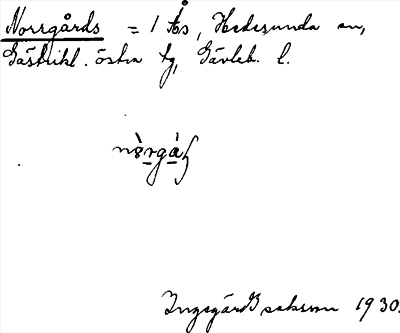 Norrgårds = 1 Ås, Hedesunda sn,
Gästrikl. östra tg, Gävleb. l.
Ingegärd Isaksson 1930.